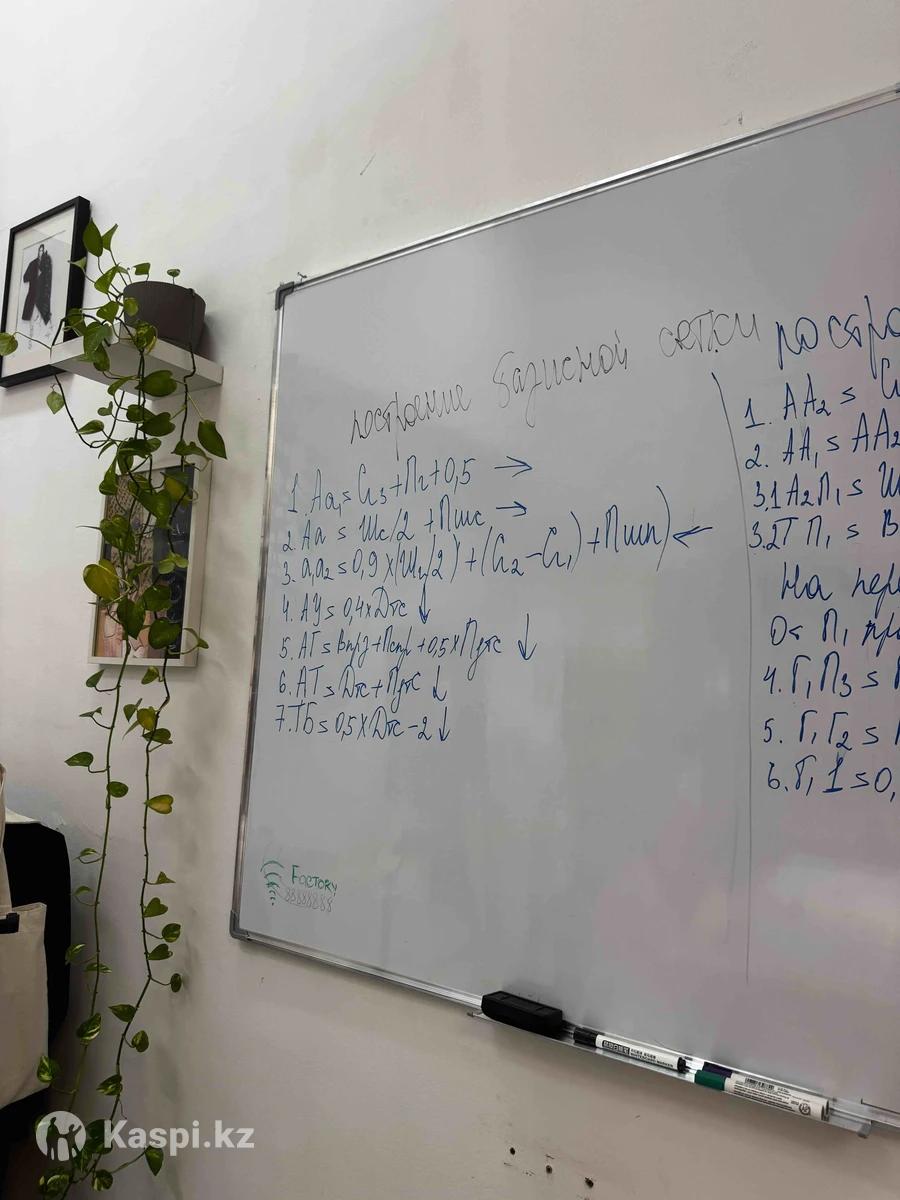 построение базисной сетки
1. Аа₁ = Сг₃+Пг+0,5 →
2. Аа = Шс/2 + Пшс →
3. а₁а₂ = 0,9 х (Шг/2) + (Сг₂-Сг₁) + Пшп) ←
4. АУ = 0,4хДтс ↓
5. АГ = Впрз+Пспр+0,5хПдтс ↓
6. АТ = Дтс+Пдтс ↓
7. ТБ = 0,5хДтс-2 ↓
1. АА₂ = Сг
2. АА₁ = АА₂
3.1 А₂П₁ = Ш
3.2 Г П₁ = В
На пер
От П₁ пр
4. Г₁П₃ =
5. Г₁Г₂ =
6. Г₁1 = 0,
Factory
88888888
Kaspi.kz